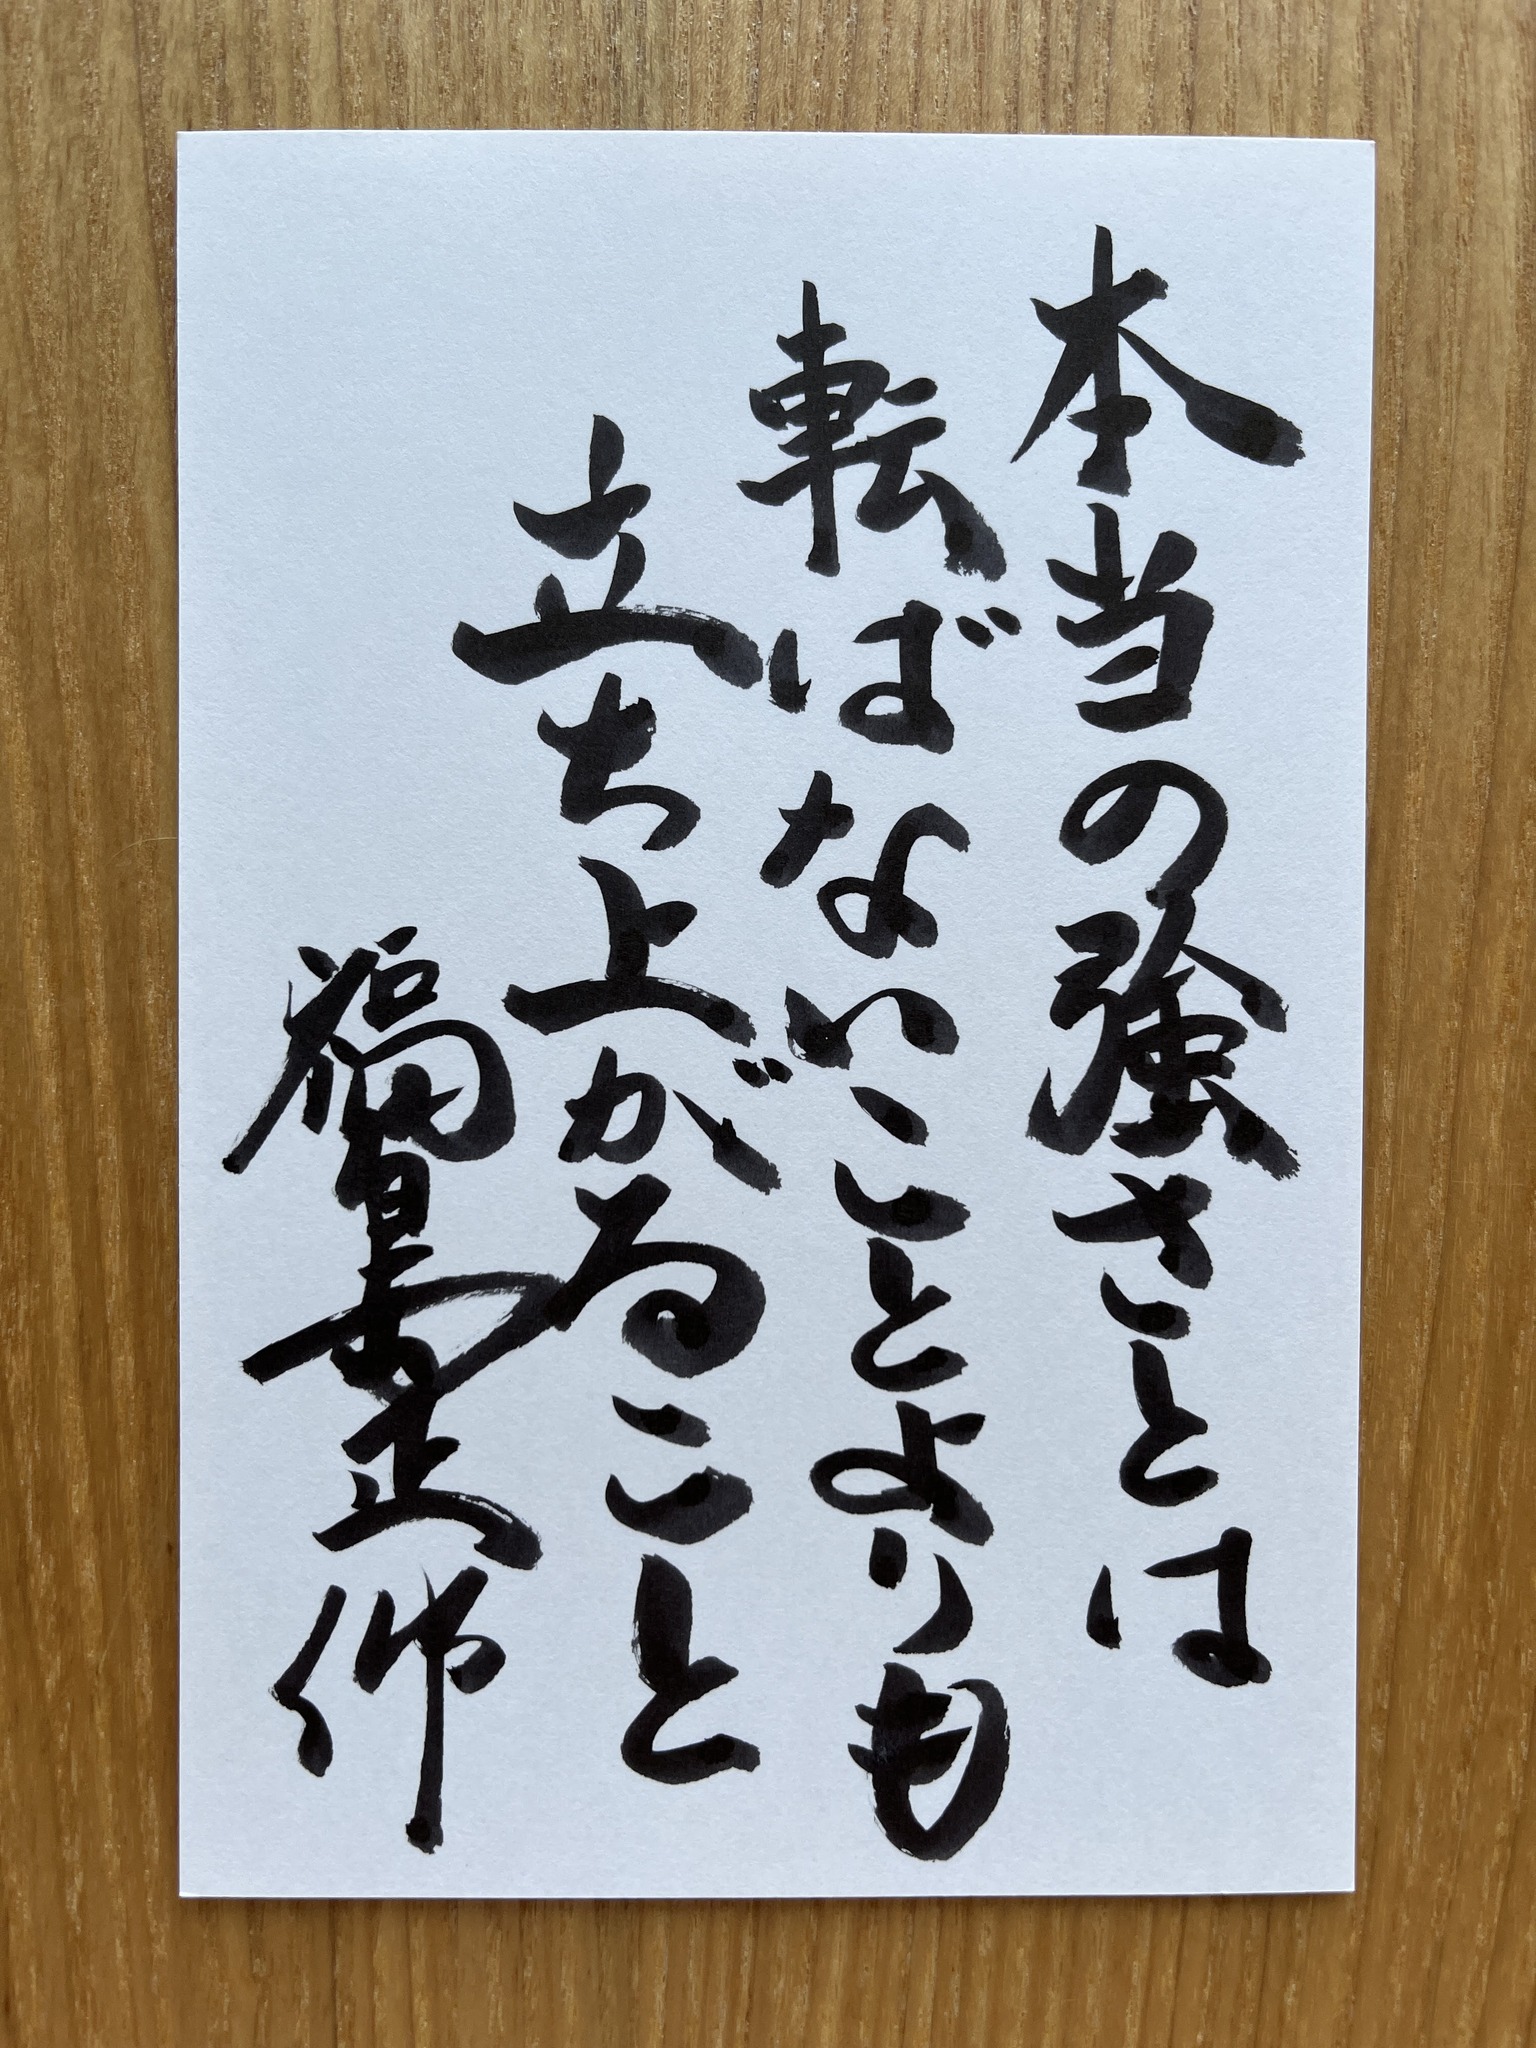 本当の強さとは
転ばないことよりも
立ち上がること